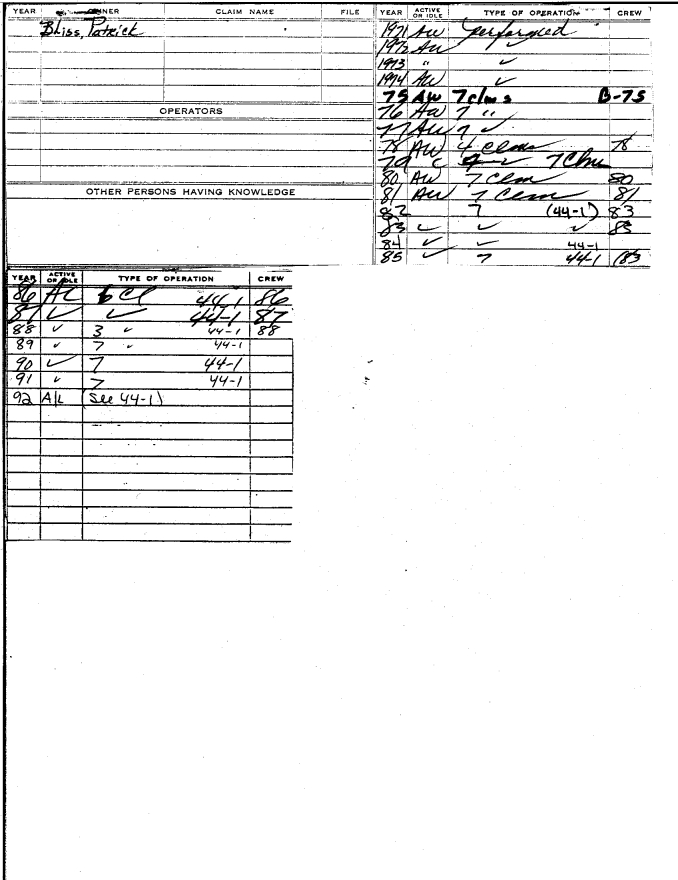 YEAR OWNER CLAIM NAME FILE
Bliss, Patrick
OPERATORS
OTHER PERSONS HAVING KNOWLEDGE
YEAR ACTIVE OR IDLE TYPE OF OPERATION CREW
1971 AW performed
1972 AW ✓
1973 " ✓
1974 AW ✓
75 AW 7 clms B-75
76 AW 7 "
77 AW 7 ✓
78 AW 4 Clms 78
79 7 Clms
80 AW 7 Clm 80
81 AW 7 Clms 81
82 7 (44-1) 83
83 ✓ ✓ ✓ 83
84 ✓ ✓ 44-1
85 ✓ 7 44-1 (83
YEAR ACTIVE OR IDLE TYPE OF OPERATION CREW
86 AL 6 Cl 44-1 86
87 ✓ ✓ 44-1 87
88 ✓ 3 " 44-1 88
89 ✓ 7 " 44-1
90 ✓ 7 44-1
91 ✓ 7 44-1
92 A/L (See 44-1)